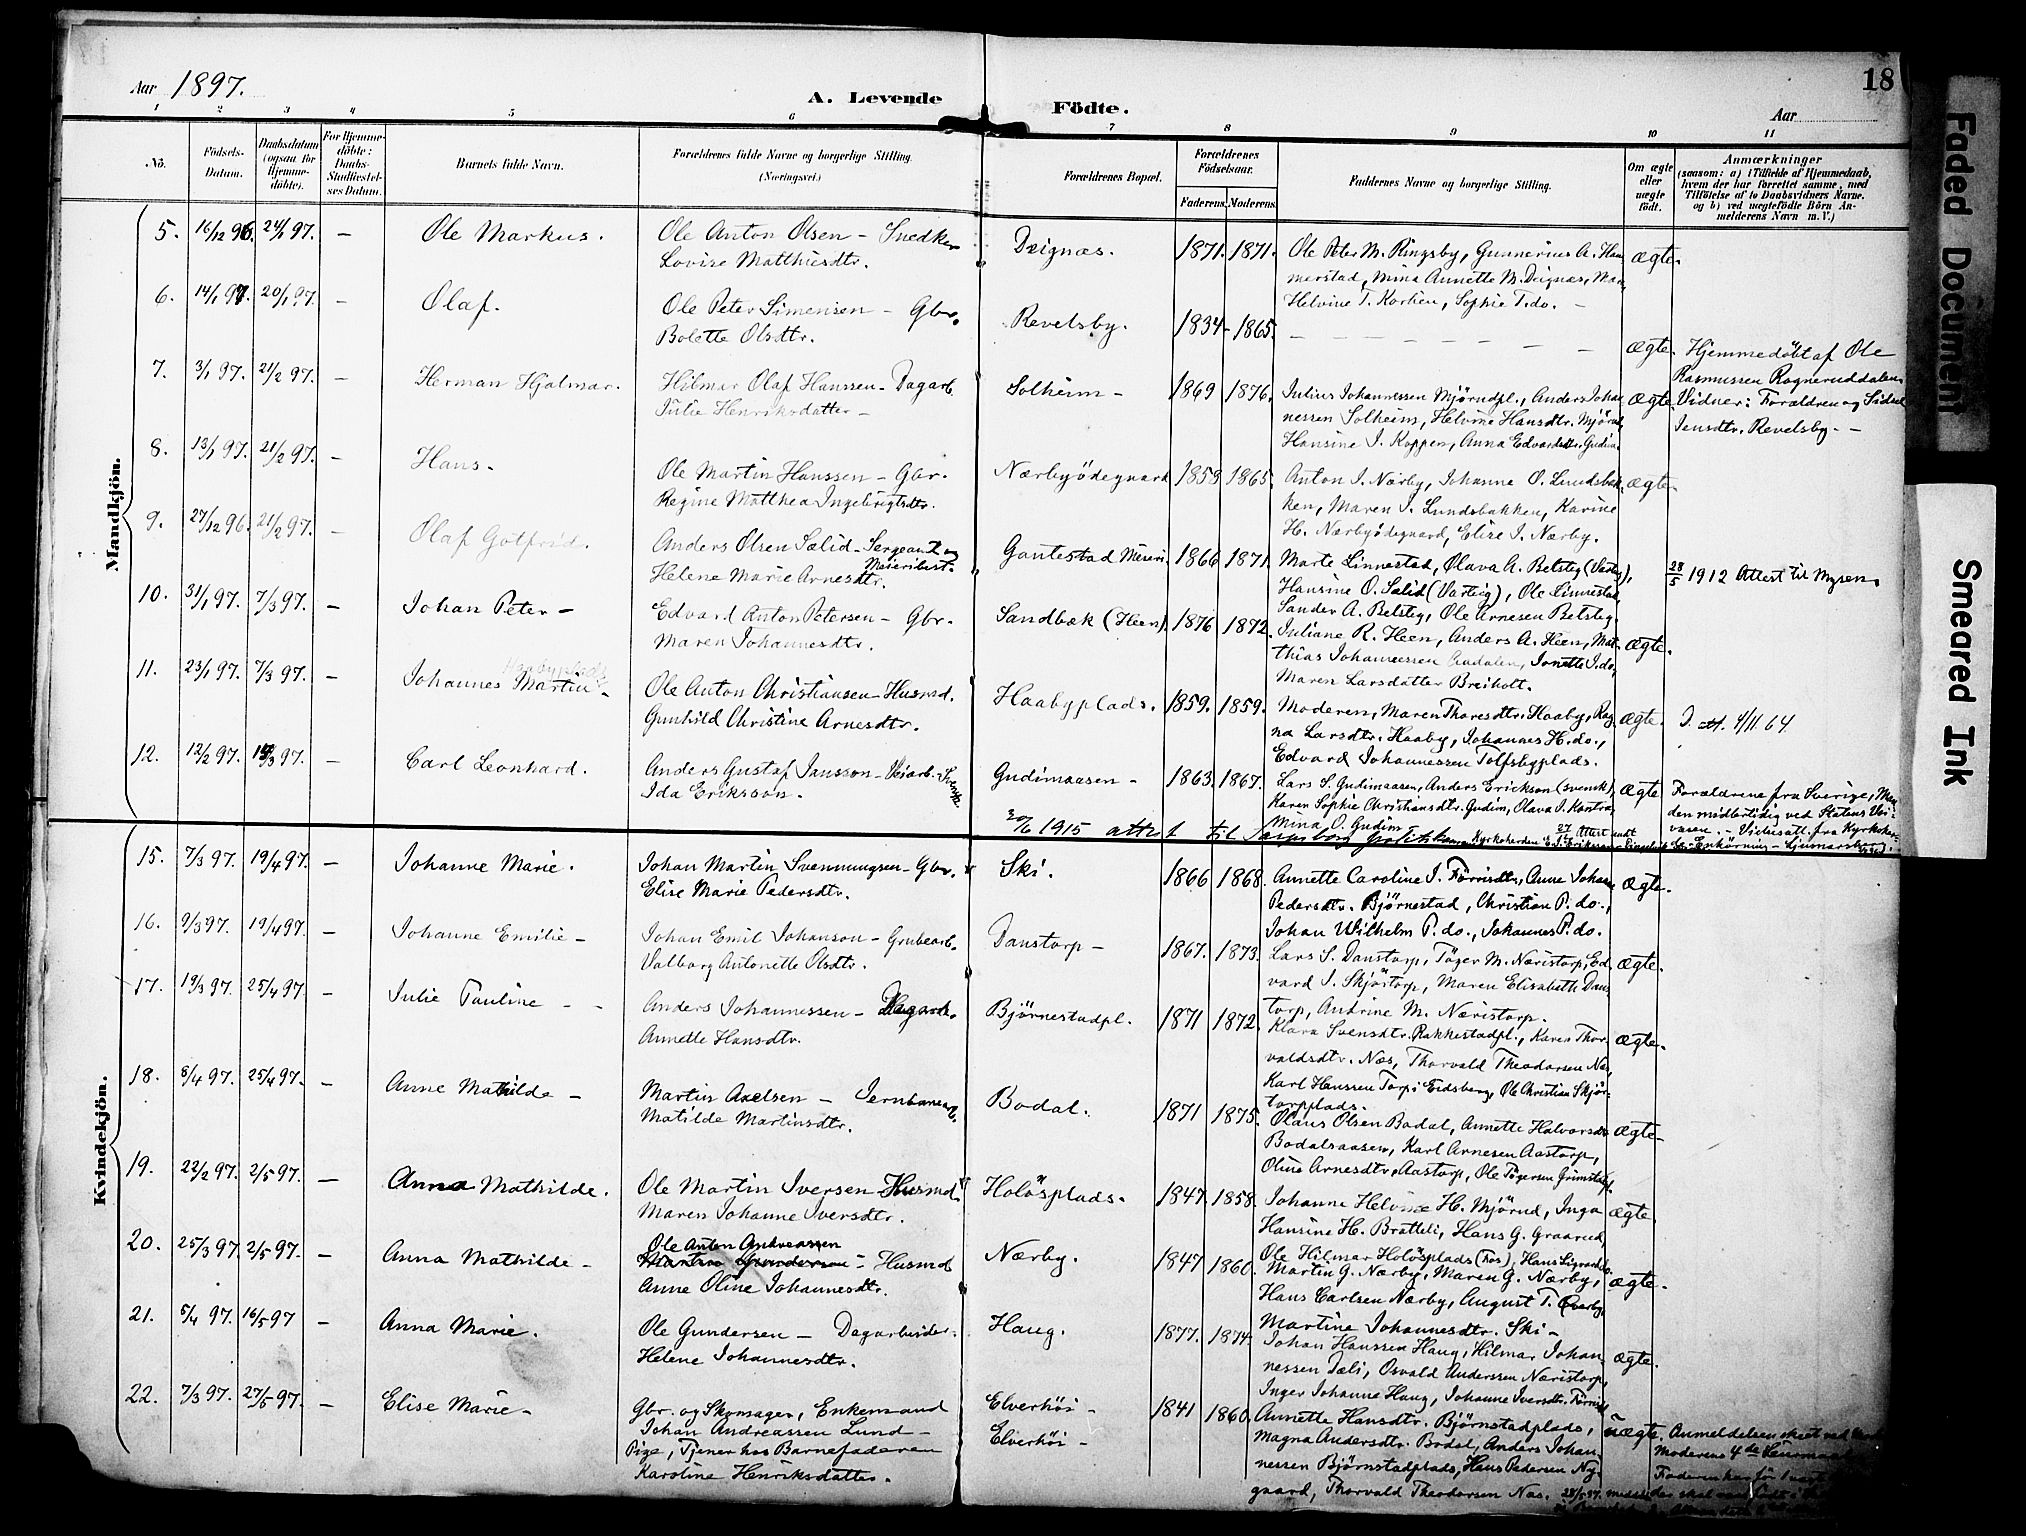 Aar 1897.
A. Levende Födte.
18
Aar
1 2 3 4 5 6 7 8 9 10 11
Nö.
Födsels-Datum.
Daabsdatum (ogsaa for Hjemmedöbte).
For Hjemmedöbte: Daabs-Stadfæstelses Datum.
Barnets fulde Navn.
Forældrenes fulde Navne og borgerlige Stilling. (Næringsvei.)
Forældrenes Bopæl.
Forældrenes Födselsaar.
Faderens. Moderens.
Faddernes Navne og borgerlige Stilling.
Om ægte eller uægte födt.
Anmærkninger
(saasom: a) i Tilfælde af Hjemmedaab, hvem der har forrettet samme, med Tilföielse af to Daabsvidners Navne. og b) ved uægtefödte Börn Anmelderens Navn m. V.)
Mandkjön.
5. 16/12 96. 24/1 97. – Ole Markus. Ole Anton Olsen – Snedker Deignæs. 1871. 1871. Ole Peter M. Ringsby, Gunnerius A. Ham ægte.
Lovise Matthiesdtr. merstad, Mina Annette M. Deignæs,
Helvine T. Kortien, Sophie T. do. –
6. 14/1 97. 20/1 97. – Olaf. Ole Peter Simensen – Gbr. Revelsby. 1834 – 1865. – – – – – – – ægte. Hjemmedöbt af Ole
Bolette Olsdtr. Rasmussen Ragneruddalen.
7. 3/1 97. 21/2 97. – Herman Hjalmar. Hilmar Olaf Hanssen – Dagarb. Solheim – 1869 1876. Julius Johannessen Mjörudpl., Anders Johan ægte. Vidner: Forældren og Sidsel
Julie Henriksdatter – nessen Solheim, Helvine Hansdtr. Mjörud, Jensdtr. Revelsby. –
Hansine J. Koppen, Anna Edvardsdtr. Gudim.
8. 13/1 97. 21/2 97. – Hans. Ole Martin Hanssen – Gbr. Nærbyödegaard 1859 1865. Anton I. Nærby, Johanne O. Lundsbak ægte.
Regine Matthea Ingebrigtsdtr. ken, Maren I. Lundsbakken, Karine
H. Nærbyödegaard, Elise I. Nærby.
9. 27/12 96. 21/2 97. – Olaf Gotfrid. Anders Olsen Sælid – Sergeant og Gautestad Meieri. 1866 1871. Marte Linnestad, Olava A. Belsteg (Varteig), 28/5 1912 Attest til Mysen.
Helene Marie Arnesdtr. Meieribest. Hansine O. Sælid (Varteig), Ole Linnestad,
Sander A. Belsteg, Ole Arnesen Belsteg.
10. 31/1 97. 7/3 97. – Johan Peter – Edvard Anton Petersen – Gbr. Sandbæk (Heen). 1876 1872. Juliane R. Heen, Anders A. Heen, Mat ægte.
Maren Johannesdtr. thias Johannessen Aadalen, Jonette J. do,
Maren Larsdatter Breiholt.
11. 23/1 97. 7/3 97. – Johannes Martin – Haabyplads Ole Anton Christiansen – Husmd. Haabyplads. 1859. 1859. Moderen, Maren Thoresdtr. Haaby, Rag ægte. D. att. 4/11. 64.
Gunhild Christine Arnesdtr. na Larsdtr. Haaby, Johannes H. do.,
Edvard Johannessen Tolfsbyplads.
12. 12/2 97. – Carl Leonhard. Anders Gustaf Jansson – Veiarb. Svensk Gudimaasen – 1863. 1867. Lars S. Gudimaasen, Anders Erickson (svensk), ægte Forældrene fra Sverige, Man
Ida Eriksson. Karen Sophie Christiansdtr. Gudim, Olava I. Kantra, den midlertidig ved Statens Vei
Mina O. Gudim væsen. – Vidusatt. fra Kyrkoher
20/6 1915 attest til Sarpsborg
Kvindekjön.
15. 7/3 97. 19/4 97. – Johanne Marie. Johan Martin Svenningsen – Gbr. Ski. 1866 1868. Annette Caroline J. Förrisdtr., Anne Johan ægte.
Elise Marie Pedersdtr. Pedersdtr. Björnestad, Christian P. do.,
Johan Wilhelm P. do., Johannes P. do.
16. 9/3 97. 19/4 97. – Johanne Emilie – Johan Emil Johanson – Grubearb. Danstorp – 1867. 1873. Lars S. Danstorp, Töger M. Næristorp, Ed ægte.
Valborg Antonette Olsdtr. vard J. Skjörtorp, Maren Elisabeth Dans
torp, Andrine M. Næristorp.
17. 19/3 97. 25/4 97. – Julie Pauline – – Anders Johannessen – Dagarb. Björnestadpl. 1871 1872. Klara Svensdtr. Rakkestadpl., Karen Thor ægte.
Annette Hansdtr. valdsdtr. Næs, Thorvald Theodorsen Næs,
Karl Hanssen Torp i Eidsberg, Ole Christian Skjör
torpplads.
18. 8/4 97. 25/4 97. – Anne Mathilde – Martin Axelsen – Jernbanearb. Bodal. 1871 1875. Olaus Olsen Bodal, Annette Halvorsdtr. ægte –
Matilde Martinsdtr. Bodalsaasen, Karl Arnesen Aastorp,
Oline Arnesdtr. Aastorp, Ole Tögersen Grimstad.
19. 22/2 97. 2/5 97. – Anna Mathilde. Ole Martin Iversen Husmd. Holösplads. 1847. 1858. Johanne Helvine H. Mjörud, Inga ægte.
Maren Johanne Iversdtr. Hansine H. Bratteli, Hans G. Graarud,
Ole Hilmar Holösplads (Fos),
20. 25/3 97. 2/5 97. – Anna Mathilde – Ole Anton Andreassen Nærby. 1847 1860. Martin G. Nærby, Maren G. Nærby, ægte.
Martin Gundersen – Husmd Hans Carlsen Nærby, August T.
Anne Oline Johannesdtr. Martine Johannesdtr. Ski –
21. 5/4 97. 16/5 97 – Anna Marie. Ole Gundersen – Dagarbeider. Haug. 1877. 1874. Johan Hanssen Haug, Hilmar Johan ægte.
Helene Johannesdtr. nessen Dæli, Osvald Anderssen Næristorp,
Inger Johanne Haug, Johanne Iversdtr.
22. 7/3 97. 27/5 97. – Elise Marie – Gbr. og Skomager, Enkemand Elverhöi – 1841 1860. Annette Hansdtr. Björnstadplads, uægte. Anmeldelsen skeet ved
Johan Andreassen Lund – Elverhöi – Magna Andersdtr. Bodal, Anders Johan Moderens 4de
Pige, Tjener hos Barnefaderen nessen Björnstadplads, Hans Pedersen Ny Faderen har för
Karoline Henriksdatter. gaard, Thorvald Theodorsen Næs.
Faded Document
Smeared Ink